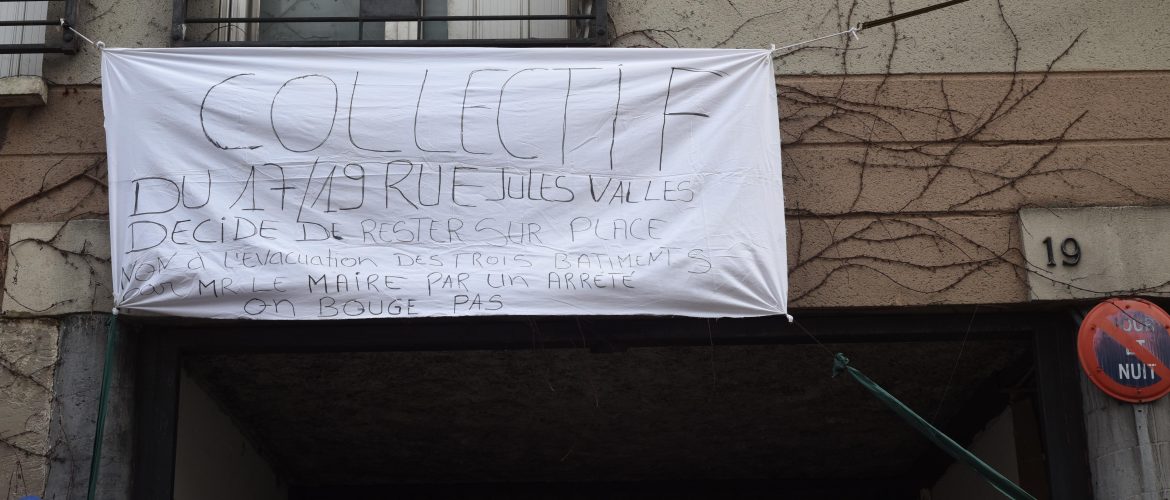 COLLECTIF
DU 17/19 RUE JULES VALLES
DECIDE DE RESTER SUR PLACE
NON à L'EVACUATION DES TROIS BATIMENTS
Par MR. LE MAIRE PAR UN ARRETÉ
ON BOUGE PAS
19
JOUR
ET
NUIT